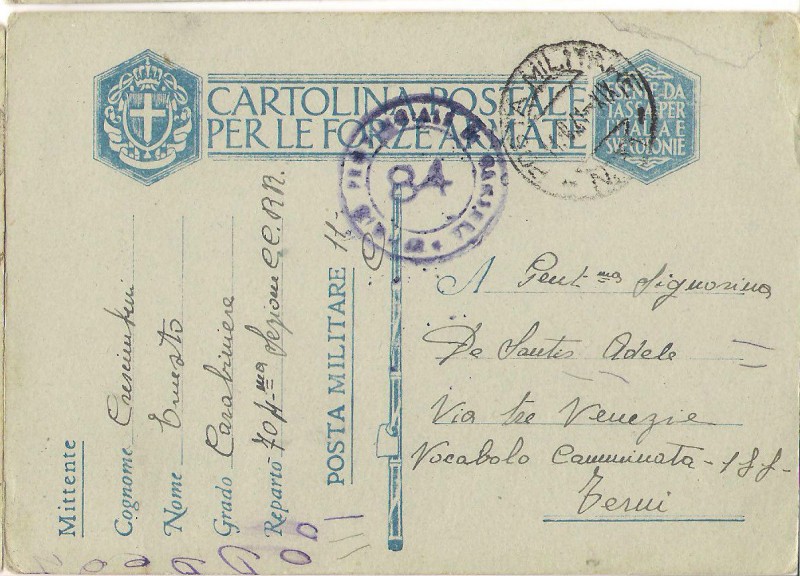 CARTOLINA POSTALE
PER LE FORZE ARMATE
TASSA PER
ITALIA E
COLONIE
POSTA MILITARE
84
Mittente
Cognome Crescimbeni
Nome Ernesto
Grado Carabiniere
Reparto 704-ma Sezione CC.RR.
POSTA MILITARE 11-
A Gent.ma Signorina
De Santis Adele
Via tre Venezie
Vocabolo Camminata - 1
Terni